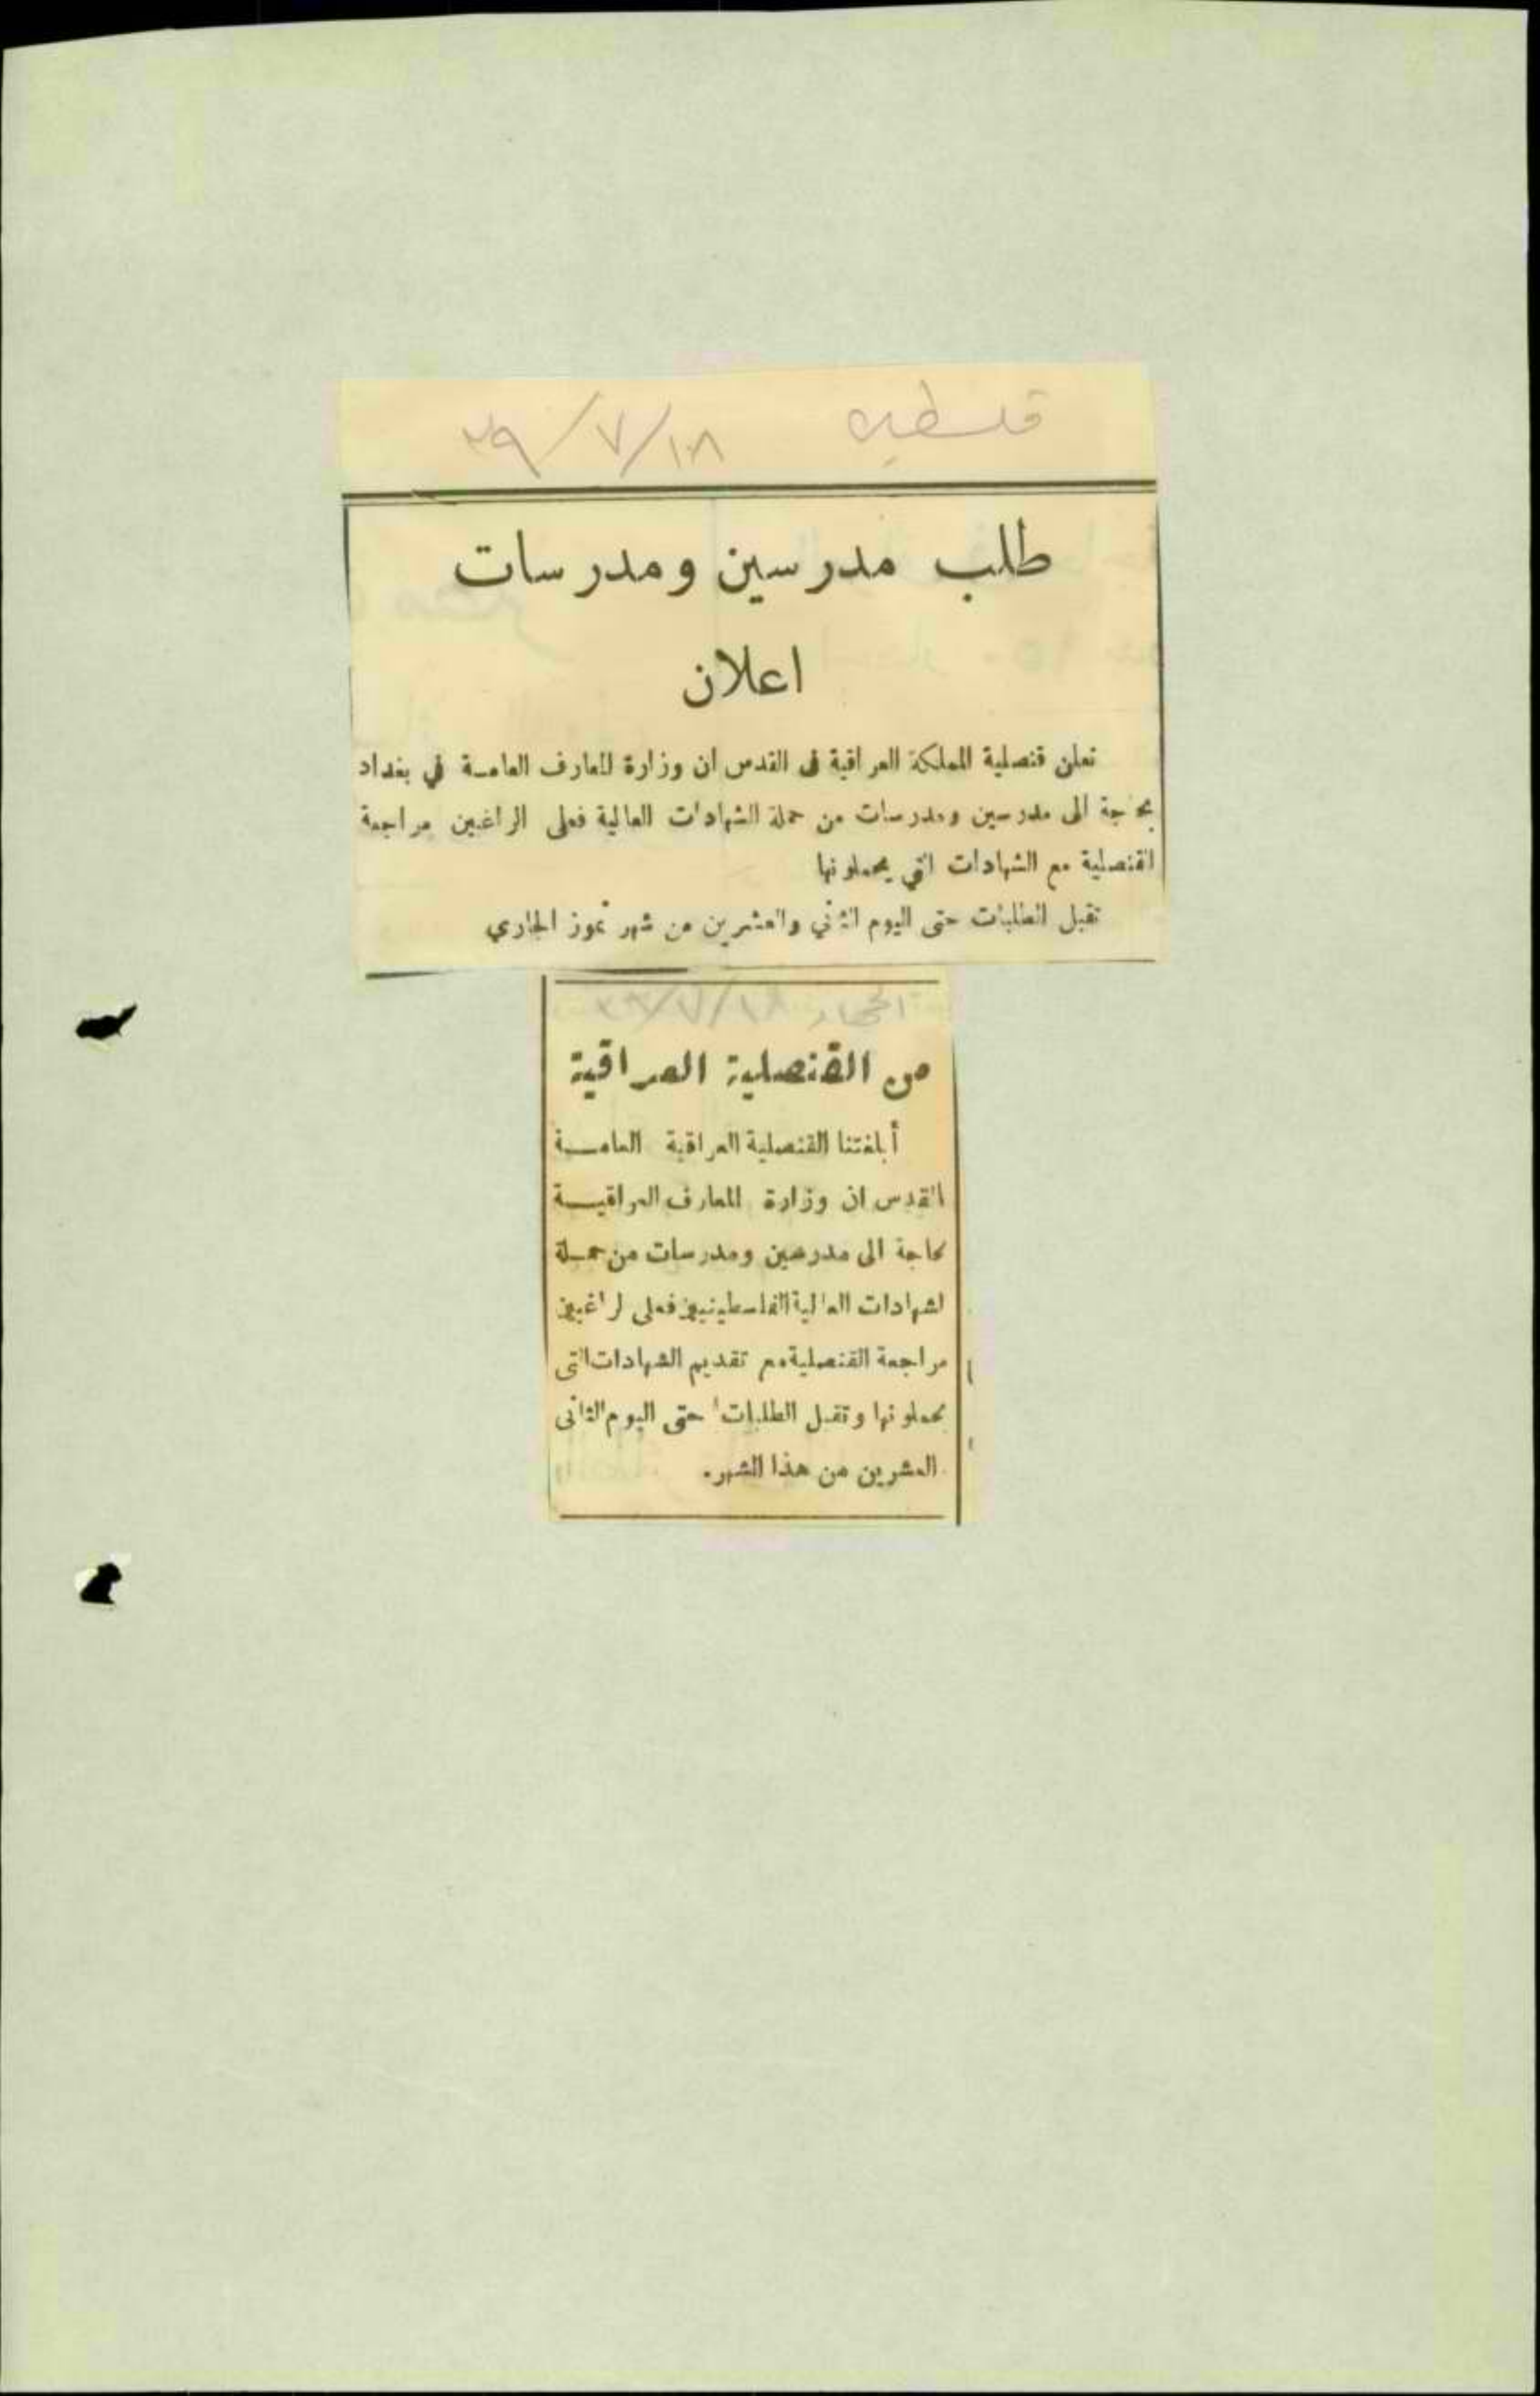 فلسطين ١٨/٧/٣٩
طلب مدرسين ومدرسات
اعلان
تعلن قنصلية المملكة العراقية في القدس ان وزارة المعارف العامة في بغداد
بحاجة الى مدرسين ومدرسات من حملة الشهادات العالية فعلى الراغبين مراجعة
القنصلية مع الشهادات التي يحملونها
تقبل الطلبات حتى اليوم الثاني والعشرين من شهر تموز الجاري
١٨/٧/٣٩
من القنصلية العراقية
أبلغتنا القنصلية العراقية العامة
القدس ان وزارة المعارف العراقية
بحاجة الى مدرسين ومدرسات من حملة
لشهادات العالية الفلسطينيين فعلى لراغبين
مراجعة القنصلية مع تقديم الشهادات التي
يحملونها وتقبل الطلبات حتى اليوم الثاني
العشرين من هذا الشهر.